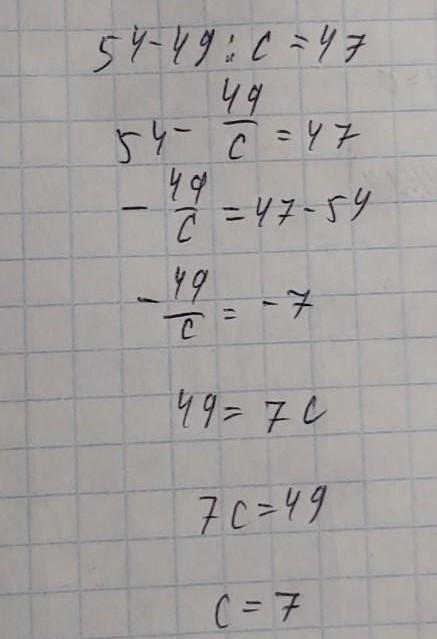 54-49:c=47
54-49/c=47
-49/c=47-54
-49/c=-7
49=7c
7c=49
c=7